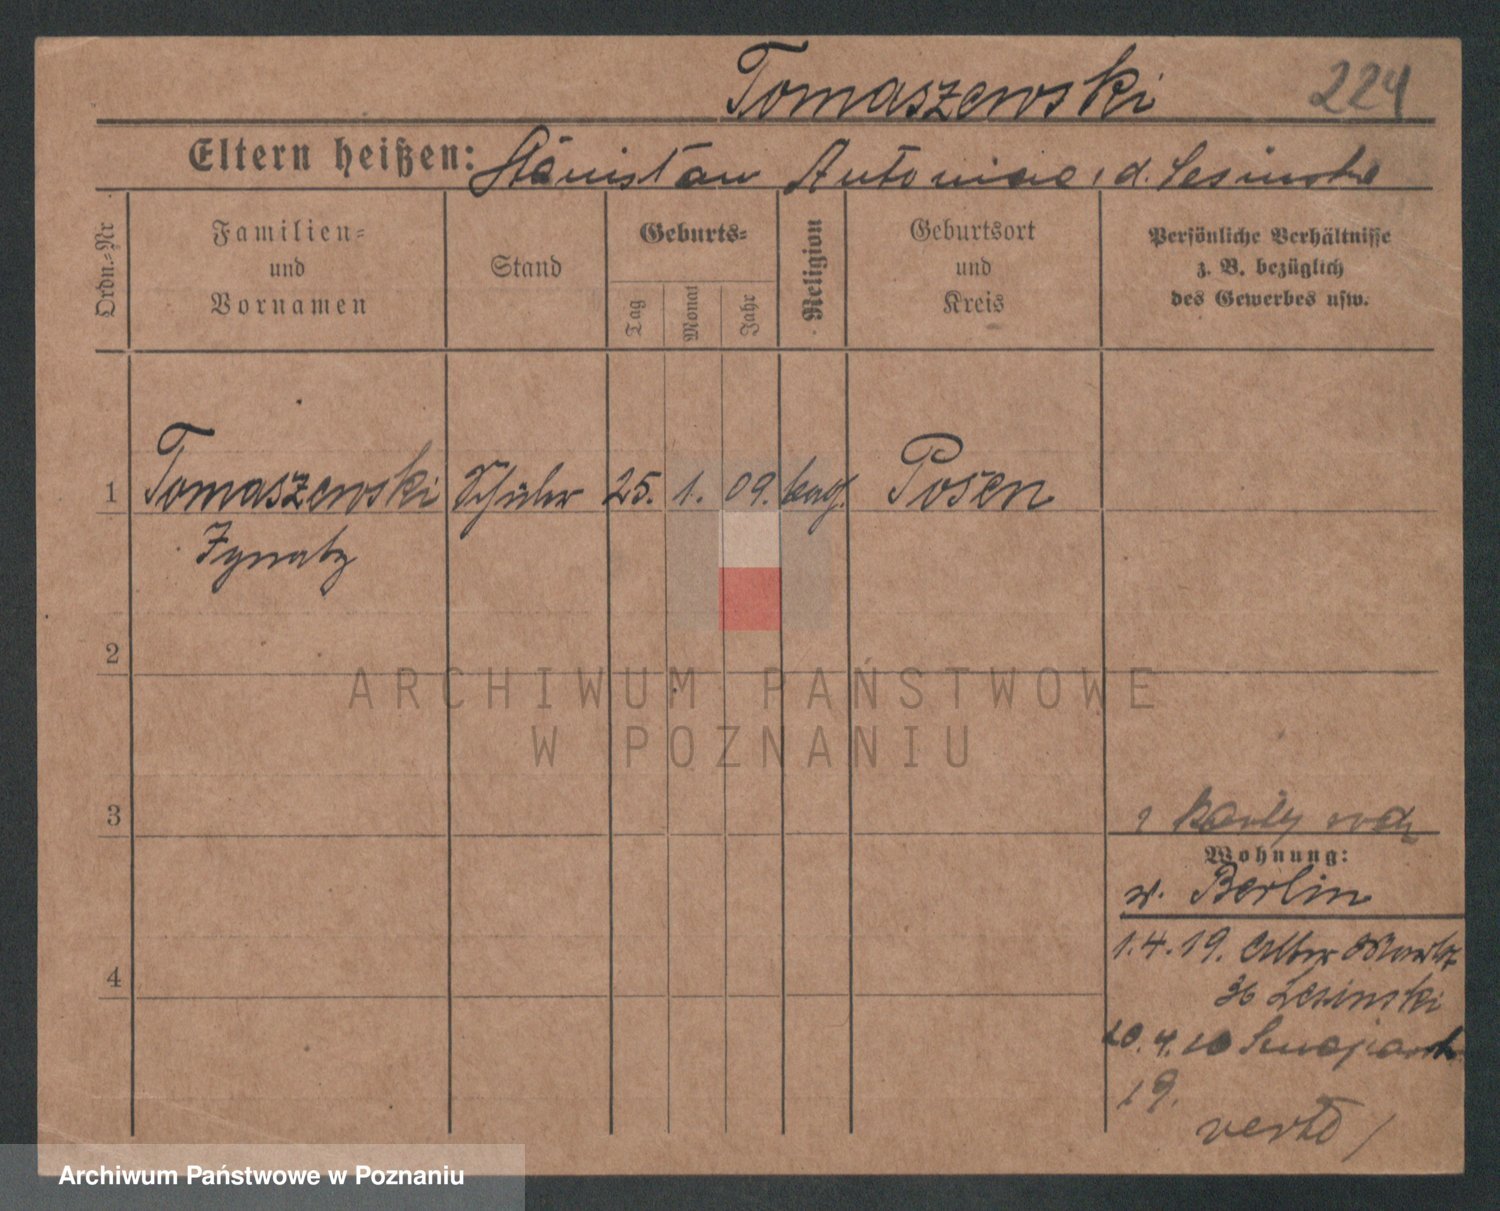 Tomaszewski 224
Eltern heißen: Stanislau Antonine, d. Lesinska
Ordn.=Nr
Familien=
und
Vornamen
Stand
Geburts=
Tag
Monat
Jahr
Religion
Geburtsort
und
Kreis
Persönliche Verhältnisse
z. B. bezüglich
des Gewerbes usw.
1 Tomaszewski Schüler 25. 1. 09. kath. Posen
Ignatz
2
3
4
Wohnung:
v. Berlin
1.4.19. Alter Markt
36 Lesinski
20.4.
19.
verte /
ARCHIWUM PAŃSTWOWE
W POZNANIU
Archiwum Państwowe w Poznaniu